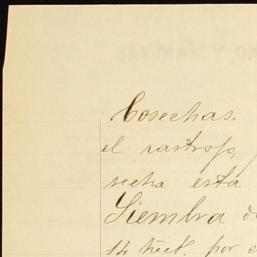 Cosechas.
el rastrojo,
secha esta
Siembra de
14 hect. por